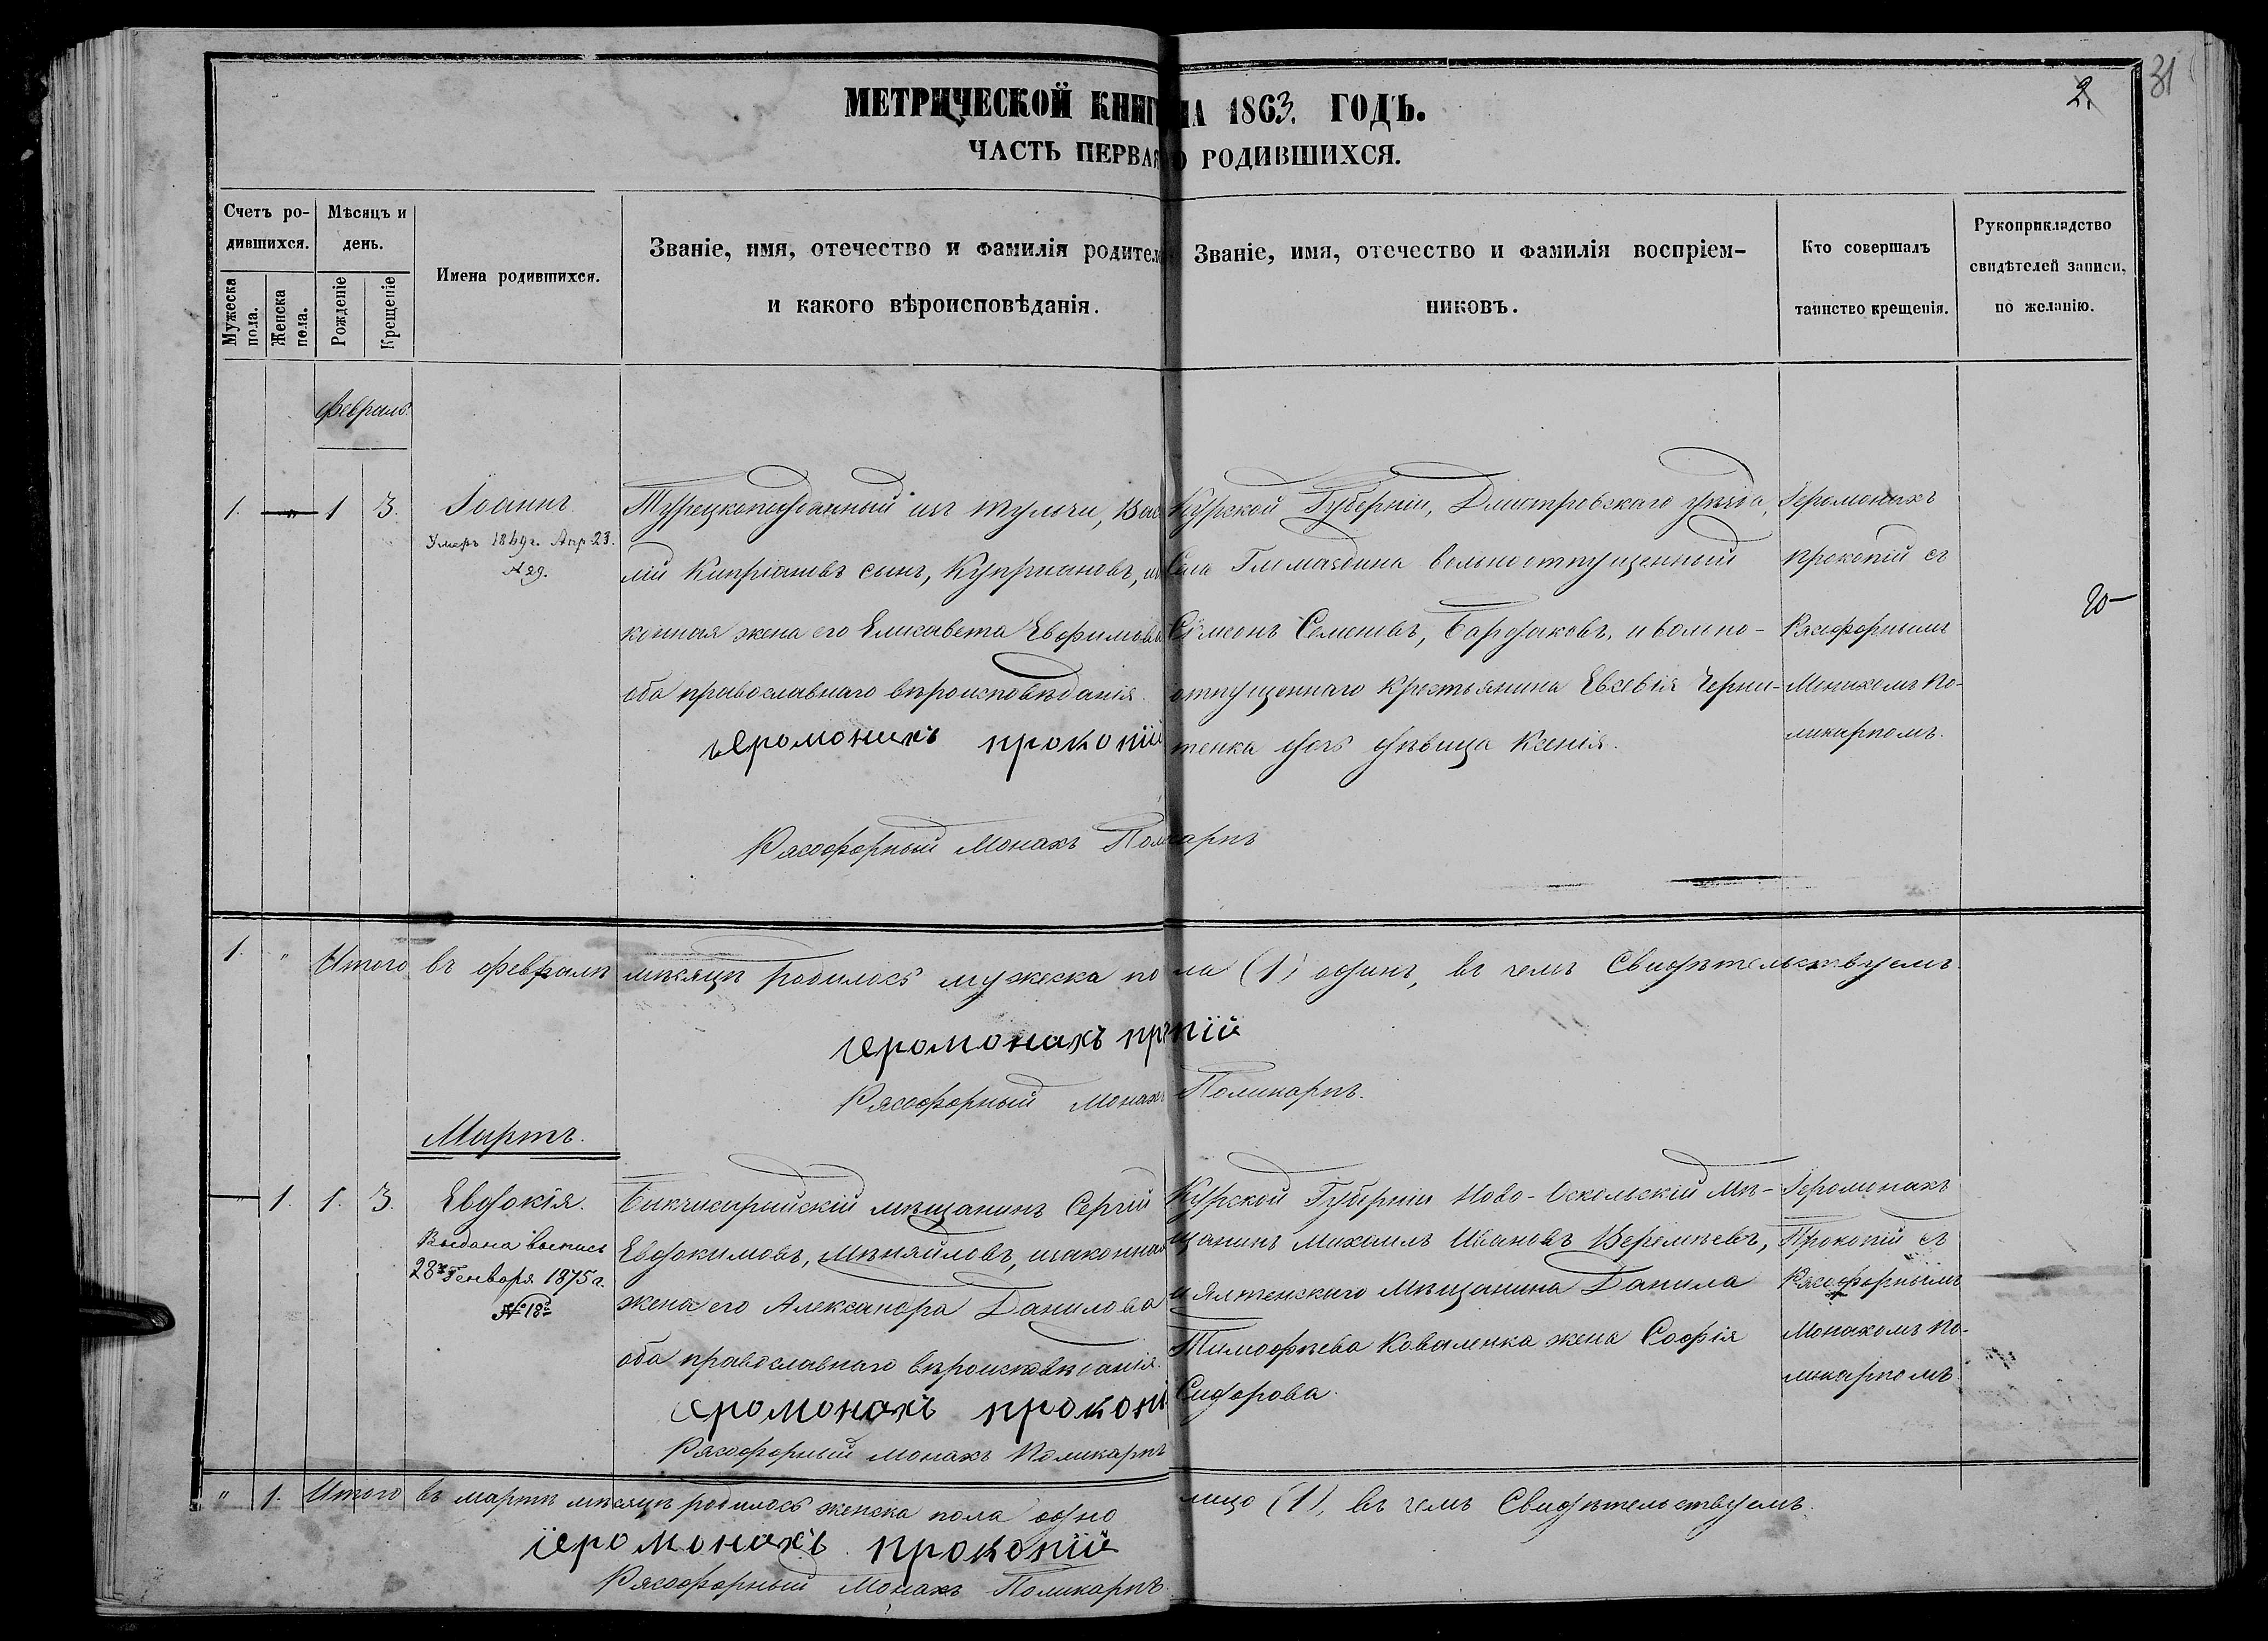 31
2.
МЕТРИЧЕСКОЙ КНИГ НА 1863. ГОДЪ.
ЧАСТЬ ПЕРВАЯ О РОДИВШИХСЯ.
Счетъ ро-
дившихся.
Мужеска пола.
Женска пола.
Мѣсяцъ и
день.
Рожденіе
Крещеніе
Имена родившихся.
Званіе, имя, отечество и фамилія родител
и какого вѣроисповѣданія.
Званіе, имя, отечество и фамилія воспріем-
никовъ.
Кто совершалъ
таинство крещенія.
Рукоприкладство
свидѣтелей записи,
по желанію.
Февраль
1. „ 1 3.
Іоаннъ
Умеръ 1869г. Апр. 23.
№ 29.
Турецкоподданный изъ Тульчи, Васи
лій Кипріановъ сынъ, Купріановъ,
конная жена его Елисавета Евфимова
оба православнаго вѣроисповѣданія.
іеромонахъ прокопій
Рясофорный Монахъ Поликарпъ
Курской Губерніи, Дмитровскаго уѣзда,
Села вольноотпущенный
Сѵмеонъ Семеновъ, и вольно-
отпущеннаго крестьянина Евсевія Черни-
тенка дочь дѣвица Ксенія.
Іеромонахъ
Прокопій съ
Рясофорнымъ
Монахомъ По-
ликарпомъ.
20
1. „ Итого въ февралѣ мѣсяцѣ родилось мужеска пола (1) одинъ, въ чемъ Свидѣтельствуемъ
іеромонахъ пр пій
Рясофорный Монахъ Поликарпъ.
Мартъ.
„ 1. 1. 3.
Евдокія.
Выдана выпись
28го Генваря 1875 г.
№ 18й
мѣщанинъ Сергій
Евдокимовъ, Мѣняйловъ, изаконная
жена его Александра Данилова
оба православнаго вѣроисповѣданія.
іеромонахъ прокопі
Рясофорный монахъ Поликарпъ
Курской Губерніи Ново-Оскольскій Мѣ-
щанинъ Михаилъ Ивановъ Веремѣевъ,
и Ялтенскаго Мѣщанина Данила
Тимофѣева Коваленка жена Софія
Сидорова.
Іеромонахъ
Прокопій съ
Рясофорнымъ
Монахомъ По-
ликарпомъ
„ 1. Итого въ мартѣ мѣсяцѣ родилось женска пола одно лицо (1), въ чемъ Свидѣтельствуемъ.
іеромонахъ прокопій
Рясофорный Монахъ Поликарпъ